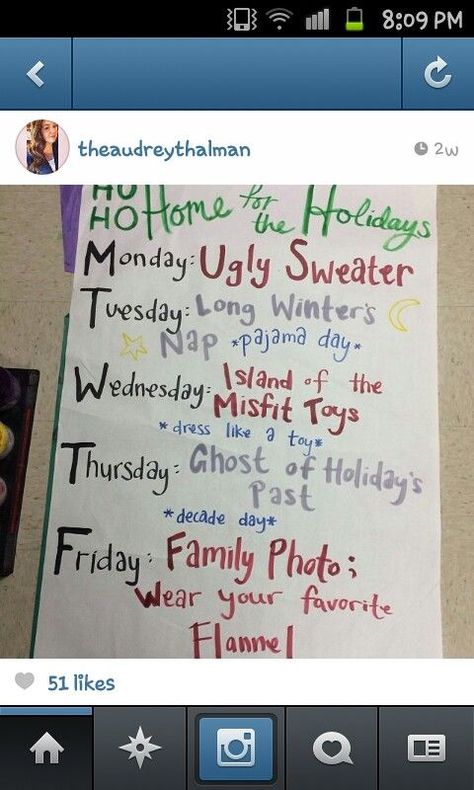 8:09 PM
theaudreythalman
2w
HO
HO Home for the Holidays
Monday: Ugly Sweater
Tuesday: Long Winter's
Nap *pajama day*
Wednesday: Island of the
Misfit Toys
*dress like a toy*
Thursday: Ghost of Holiday's
Past
*decade day*
Friday: Family Photo;
Wear your favorite
Flannel
51 likes